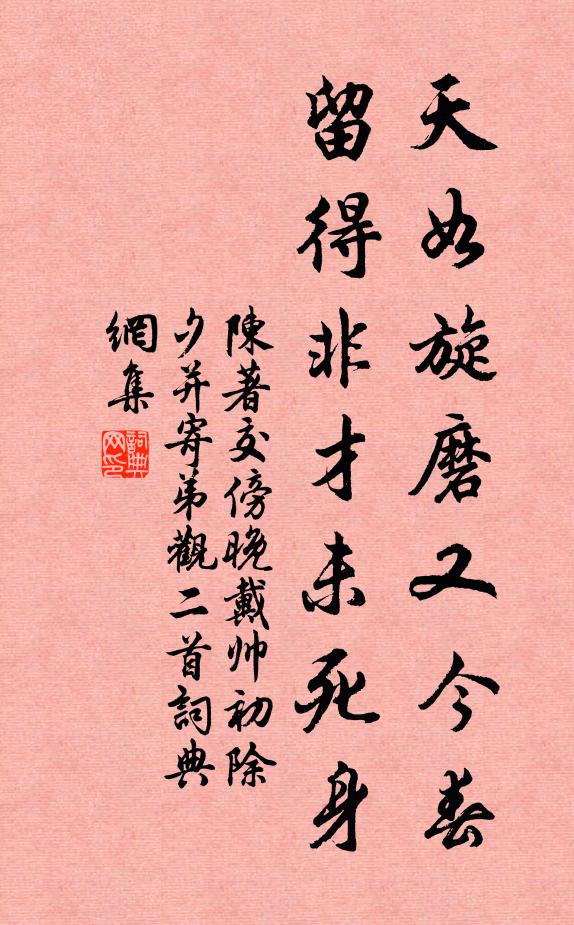 天如旋磨又今春
留得非才未死身
陳著交傍晚戴帅初除
夕并寄弟觀二首詞典
網集
詞典网印